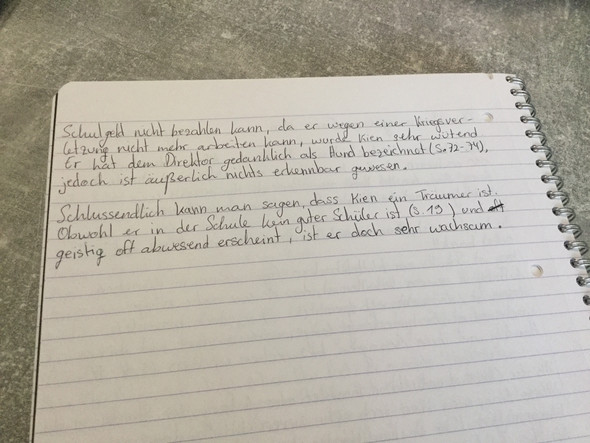 Schulgeld nicht bezahlen kann, da er wegen einer Kriegsver-
letzung nicht mehr arbeiten kann, wurde Kien sehr wütend
Er hat dem Direktor gedanklich als Hund bezeichnet (S.72-74),
jedoch ist äußerlich nichts erkennbar gewesen.
Schlussendlich kann man sagen, dass Kien ein Träumer ist.
Obwohl er in der Schule kein guter Schüler ist (S.19) und
geistig oft abwesend erscheint, ist er doch sehr wachsam.